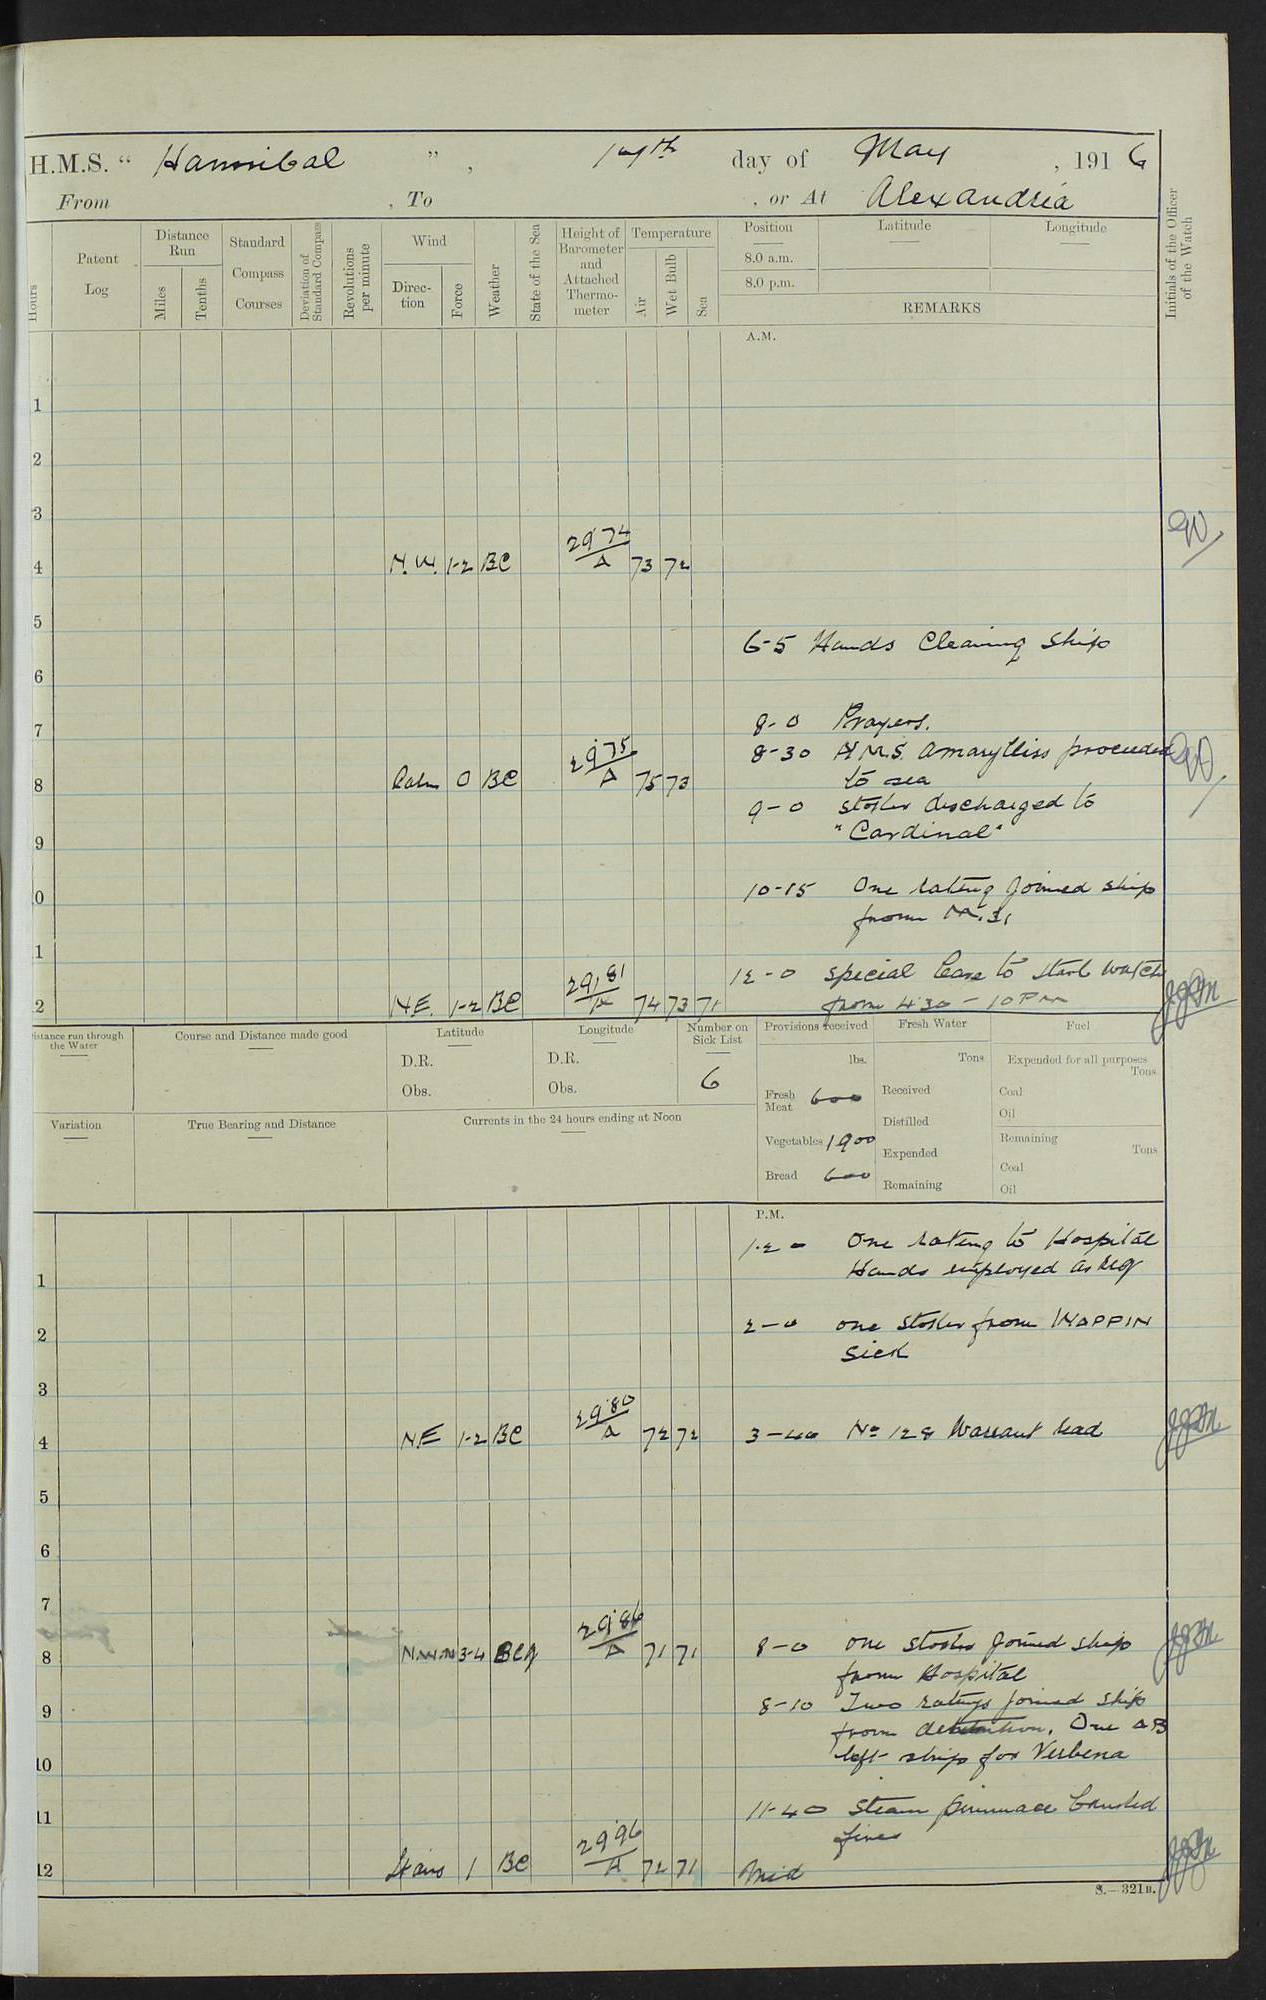 H.M.S. “ Hannibal ” , 14th day of May , 1916
From , To , or At Alexandria
Hours
Patent Log
Distance Run
Miles
Tenths
Standard Compass Courses
Deviation of Standard Compass
Revolutions per minute
Wind
Direction
Force
Weather
State of the Sea
Height of Barometer and Attached Thermometer
Temperature
Air
Wet Bulb
Sea
Position
8.0 a.m.
8.0 p.m.
Latitude
Longitude
REMARKS
Initials of the Officer of the Watch
A.M.
1
2
3
4 N.W. 1-2 BC 29.74 A 73 72
5
6-5 Hands Cleaning Ship
6
7
8-0 Prayers.
8-30 H.M.S. Amarylliss proceeded
to sea
8 Calm 0 BC 29.75 A 75 73
9-0 Stoker discharged to
"Cardinal"
9
10-15 One rating joined ship
from M.31
0
1
12-0 Special leave to Starb watch
from 4.30 - 10 PM
2 NE. 1-2 BC 29.81 A 74 73 71
Distance run through the Water
Course and Distance made good
Latitude
D.R.
Obs.
Longitude
D.R.
Obs.
Number on Sick List
6
Provisions received
lbs.
Fresh Meat 600
Vegetables 1900
Bread 600
Fresh Water
Tons
Received
Distilled
Expended
Remaining
Fuel
Expended for all purposes
Tons
Coal
Oil
Remaining
Tons
Coal
Oil
Variation
True Bearing and Distance
Currents in the 24 hours ending at Noon
P.M.
1-20 One rating to Hospital
Hands employed as req
1
2-0 one Stoker from WAPPIN
sick
2
3
4 NE 1-2 BC 29.80 A 72 72 3-40 No 128 Warrant read
5
6
7
8 3-4 BCq 29.86 A 71 71 8-0 one stoker joined ship
from Hospital
8-10 Two ratings joined ship
from detention. One AB
left ship for Verbena
9
10
11-40 Steam pinnace banked
fires
11
12 1 BC 29.96 A 72 71 Mid
S.—321B.